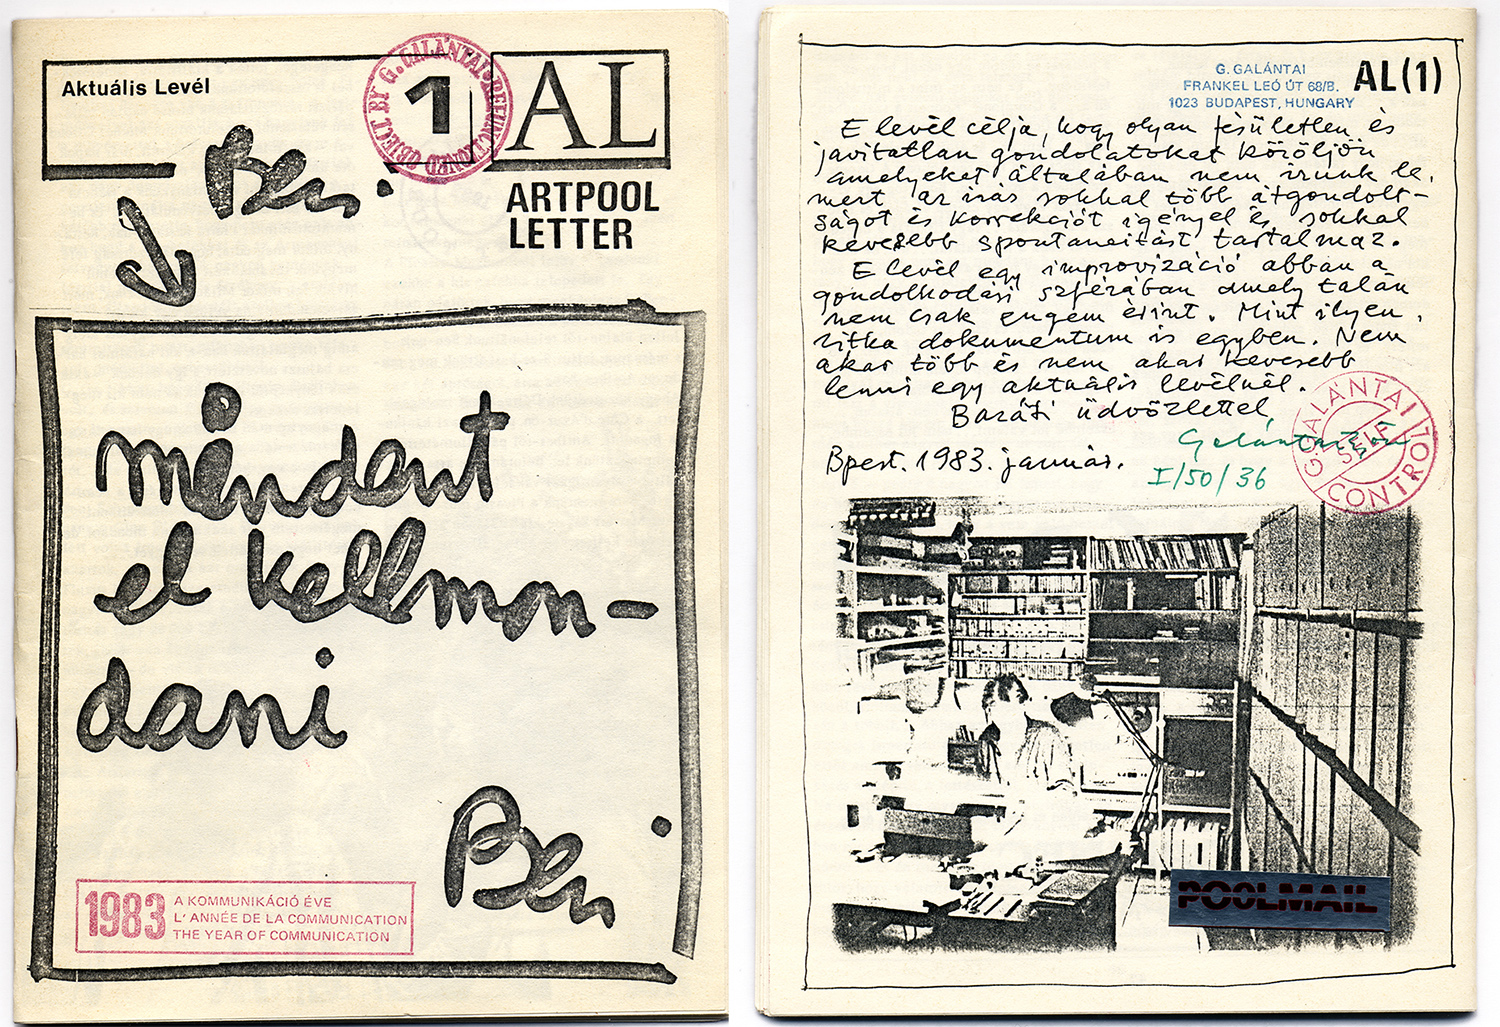 Aktuális Levél
1
AL
OBJECT BY G. GALÁNTAI • REFUNCTIONED
ARTPOOL
LETTER
Ben.
mindent
el kellmon-
dani
Ben
1983
A KOMMUNIKÁCIÓ ÉVE
L'ANNÉE DE LA COMMUNICATION
THE YEAR OF COMMUNICATION
G. GALÁNTAI
FRANKEL LEÓ ÚT 68/B.
1023 BUDAPEST, HUNGARY
AL(1)
E levél célja, hogy olyan fésületlen és
javitatlan gondolatokat köröljön
amelyeket általában nem irunk le,
mert az irás sokkal több átgondolt-
ságot és korrekciót igényel és sokkal
kevesebb spontaneitást tartalmaz.
E levél egy improvizáció abban a
gondolkodási szférában amely talán
nem csak engem érint. Mint ilyen,
ritka dokumentum is egyben. Nem
akar több és nem akar kevesebb
lenni egy aktuális levélnél.
Baráti üdvözlettel
Bpest. 1983. január.
I/50/36
G. GALÁNTAI
SELF
CONTROL
POOLMAIL